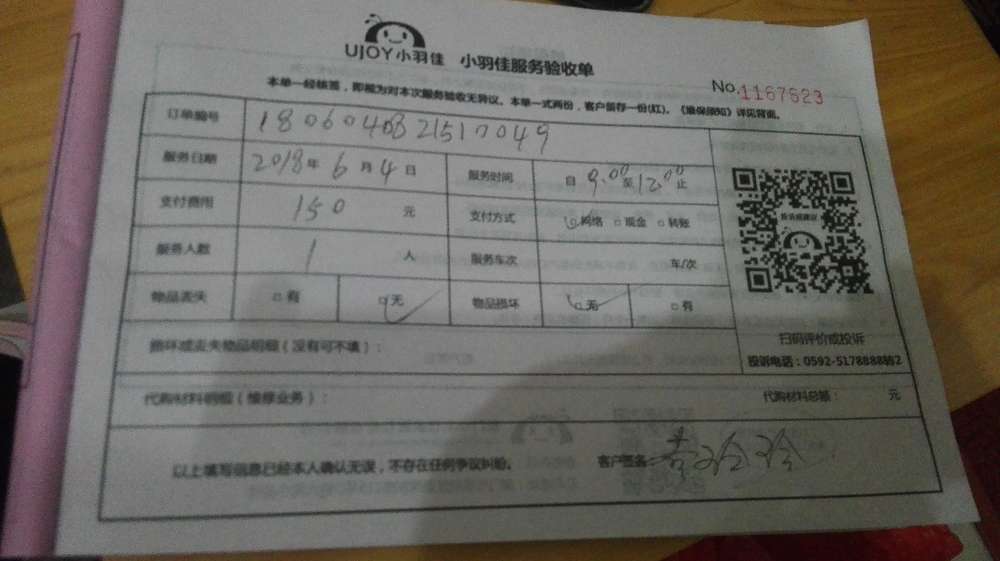 UJOY小羽佳 小羽佳服务验收单
No.1167623
本单一经核签，即视为对本次服务验收无异议。本单一式两份，客户留存一份(红)。《维保须知》详见背面。
订单编号 1806040821517049
服务日期 2018年6月4日 服务时间 自9:00至12:00止
支付费用 150 元 支付方式 网络 现金 转账
服务人数 1 人 服务车次 车/次
物品丢失 有 无 物品损坏 无 有
投诉或建议
扫码评价或投诉
投诉电话：0592-5178888转2
损坏或丢失物品明细（没有可不填）：
代购材料明细（维修业务）： 代购材料总额： 元
以上填写信息已经本人确认无误，不存在任何争议纠纷。 客户签名